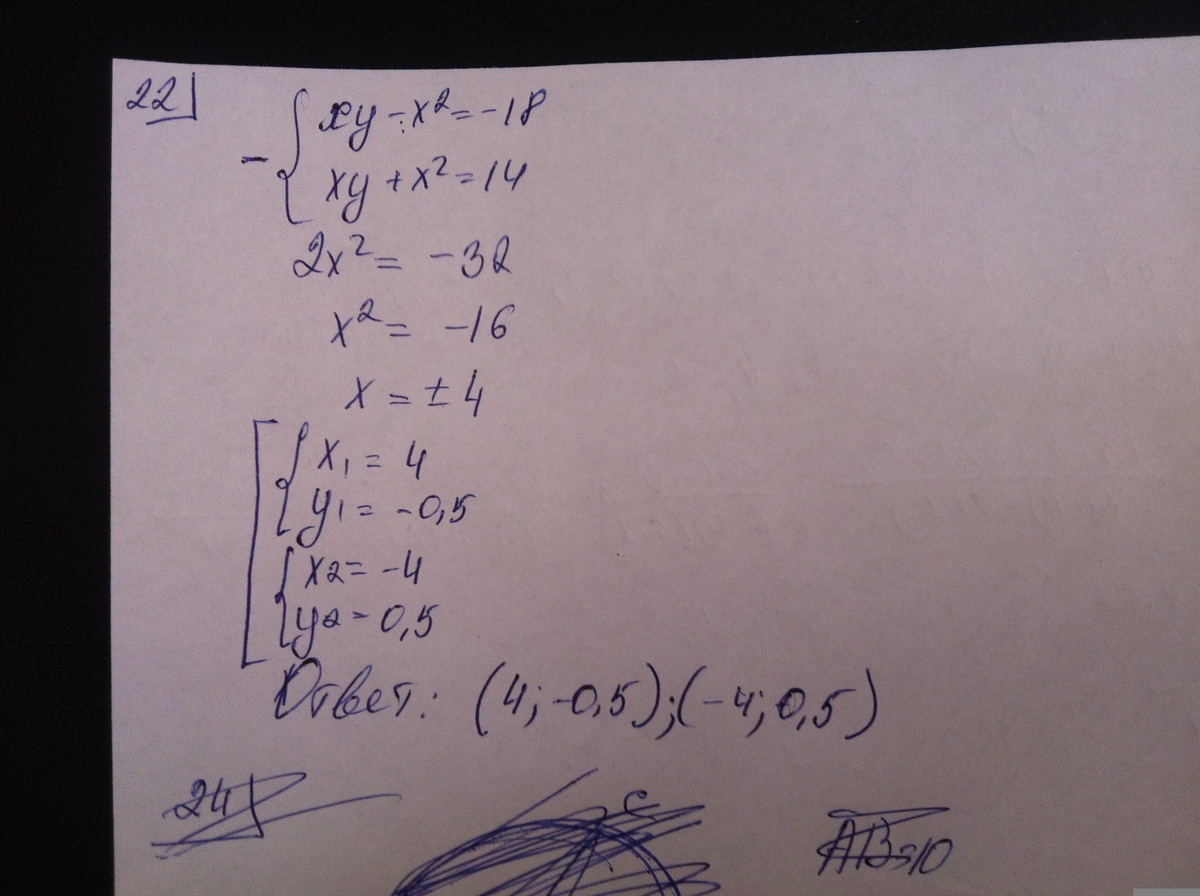 22
xy - x² = -18
- xy + x² = 14
2x² = -32
x² = -16
x = ± 4
x₁ = 4
y₁ = -0,5
x₂ = -4
y₂ = 0,5
Ответ: (4; -0,5); (-4; 0,5)
24
C
AB=10